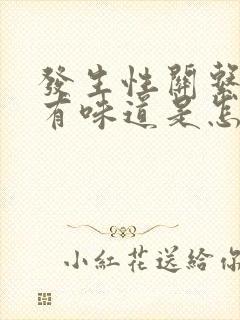 發生性關繫
有味道是怎
小紅花送給你